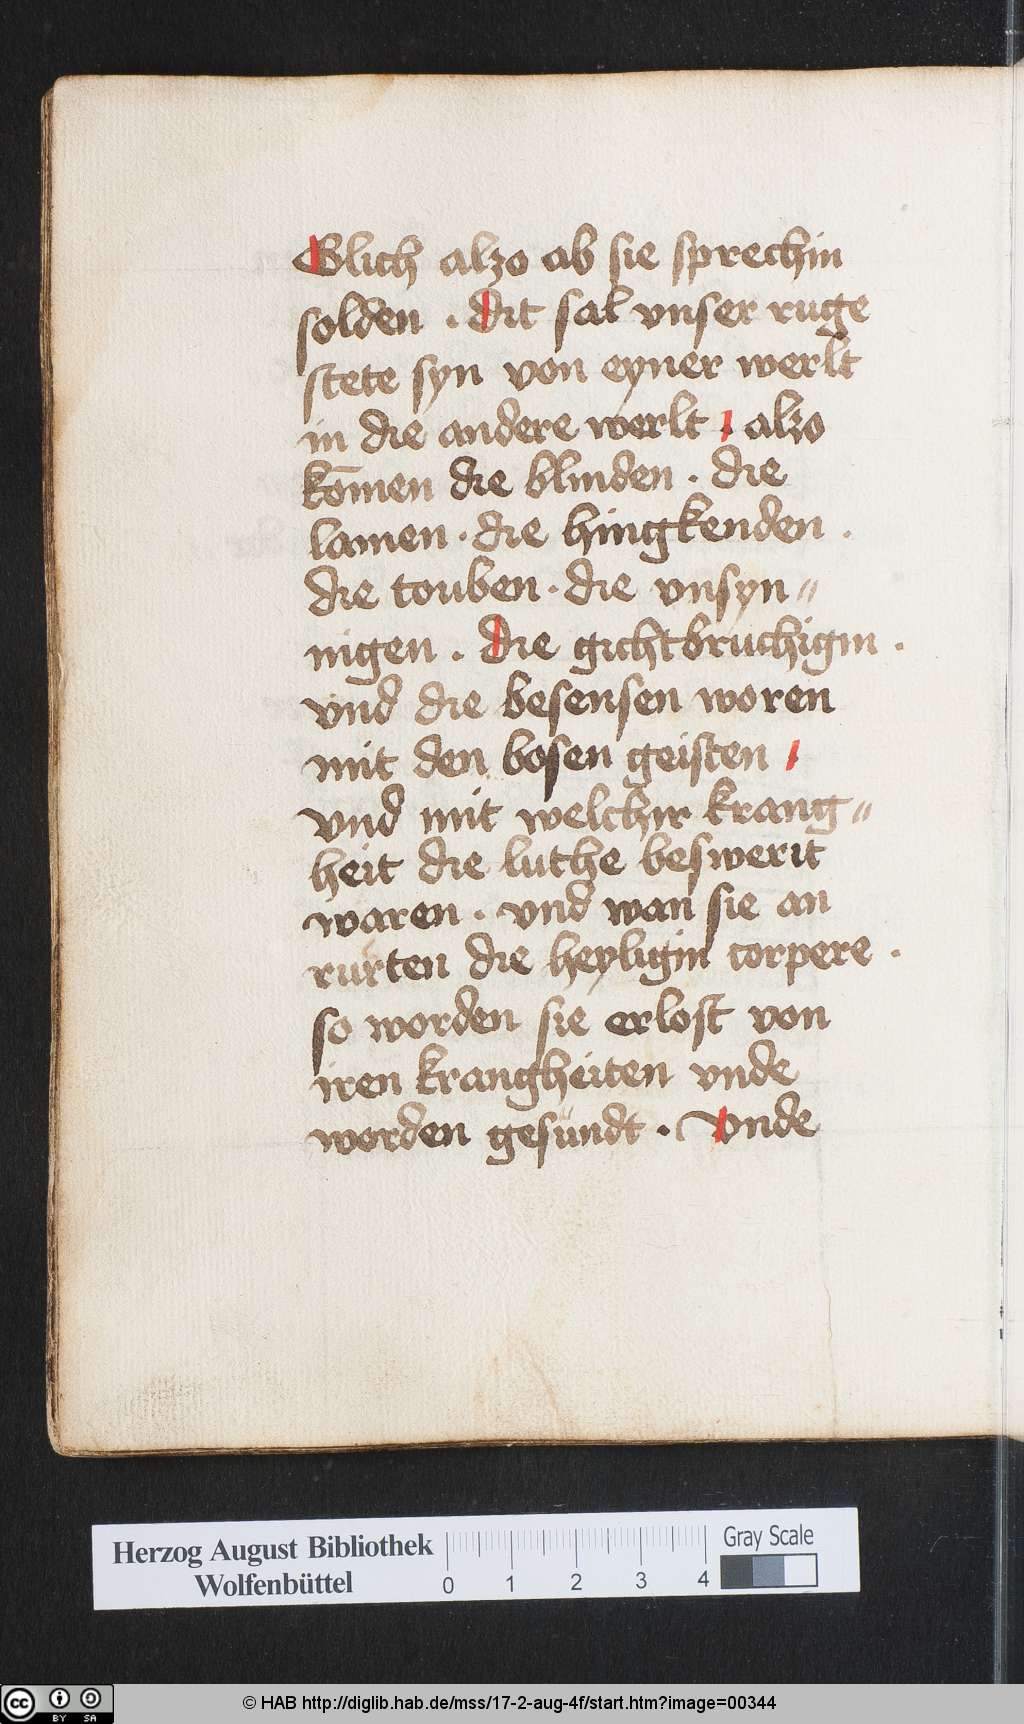 Glich alzo ab sie sprechin
solden . dit sal vnser ruge
stete syn von eyner werlt
in die andere werlt . alzo
kōmen die blinden . die
lamen . die hingkenden .
die touben . die vnsyn〃
nigen . die gichtbruchigin .
vnd die besensen woren
mit den bosen geisten
vnd mit welchir krang〃
heit die luthe beswerit
waren . vnd wan sie an
rurten die heyligin corpere .
so worden sie erlost von
iren krangheiten vnde
worden gesundt . Vnde
Herzog August Bibliothek
Wolfenbüttel
0 1 2 3 4
Gray Scale
cc BY SA
© HAB http://diglib.hab.de/mss/17-2-aug-4f/start.htm?image=00344